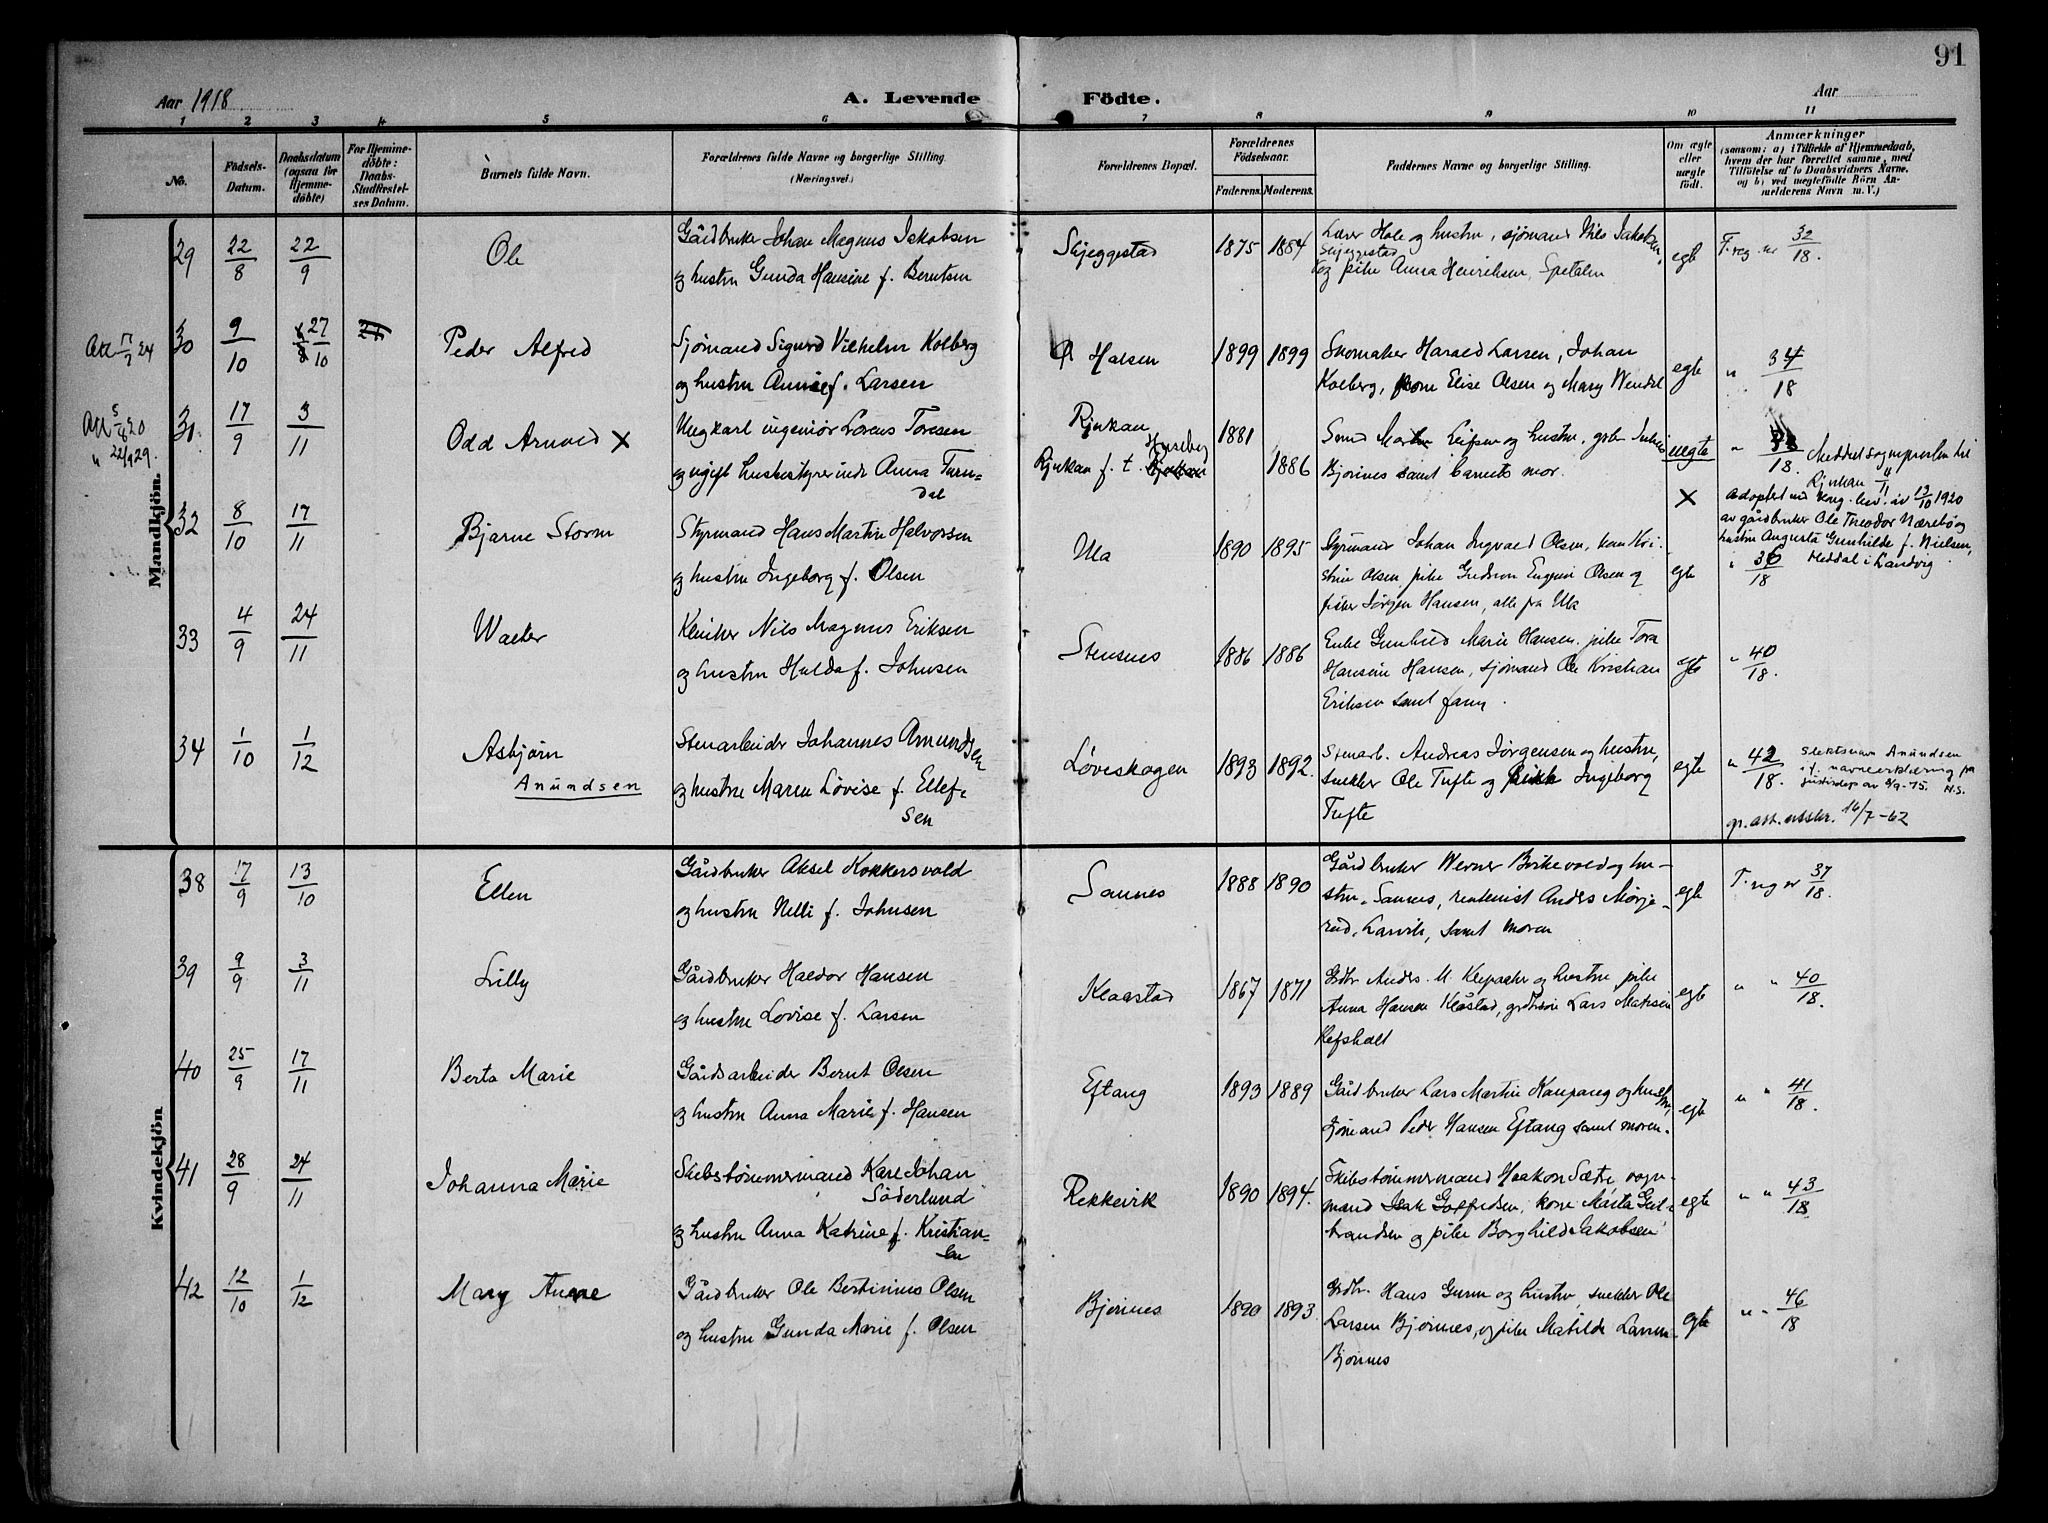 91
Aar 1918
A. Levende Födte.
Aar
1 2 3 4 5 6 7 8 9 10 11
No.
Födsels-
Datum.
Daabsdatum
(ogsaa for
Hjemme-
döbte)
For Hjemme-
döbte:
Daabs-
Stadfæstel-
ses Datum.
Barnets fulde Navn.
Forældrenes fulde Navne og borgerlige Stilling.
(Næringsvei.)
Forældrenes Bopæl.
Forældrenes
Födselsaar.
Faderens. Moderens.
Faddernes Navne og borgerlige Stilling.
Om ægte
eller
uægte
födt.
Anmærkninger
(saasom: a) i Tilfælde af Hjemmedaab,
hvem der har forrettet samme, med
Tilföielse af to Daabsvidners Navne,
og b) ved uegtefödte Börn An-
melderens Navn m. V.)
Mandkjön.
29 22/8 22/9 Ole
Gårdbruker Johan Magnus Jakobsen
og hustru Gunda Hansine f. Berntsen
Skjeggestad 1875 1884
Lærer Hole og hustru, sjömand Nils Jakobsen,
Skjeggestad
og pike Anna Henriksen, Spetalen
egte
F. reg. nr 32/18.
Att 17/7 24
30 9/10 27/10
Peder Alfred
Sjömand Sigurd Vilhelm Kolberg
og hustru Annie f. Larsen
Halsen 1899 1899
Skomaker Harald Larsen, Johan
Kolberg, kone Elise Olsen og Mary Wendel
egte
" 34/18
Att 5/8 20
" 22/9 29.
31 17/9 3/11
Odd Arnold X
Ungkarl ingeniør Lorens Toresen
og ugift husbestyrerinde Anna Turn-
dal
Rjukan
Rjukan f. t. Huseby
1881
1886
Smed Martin Leifsen og hustru, gbr.
Bjørnes samt barnets mor.
uegte
18. Meddelt sognepresten til
Rjukan
X Adoptert ved kng. bev. av 12/10 1920
av gårdbruker Ole Theodor Nærebö og
hustru Augusta Gunhilde f. Nielsen,
Heddal i Landvig
32 8/10 17/11
Bjarne Storm
Styrmand Hans Martin Halvorsen
og hustru Ingeborg f. Olsen
Ula 1890 1895
Styrmand Johan Ingvald Olsen, kone Kri-
stine Olsen, pike Gudrun Eugenie Olsen og
fisker Jørgen Hansen, alle fra Ula
egte
" 36/18
33 4/9 24/11
Walter
Kleinker Nils Magnus Eriksen
og hustru Hulda f. Johnsen
Stensnes 1886 1886
Enke Gunhild Marie Hansen, pike Tora
Hansine Hansen, sjömand Ole Kristian
Eriksen samt faren.
egte
" 40/18.
34 1/10 1/12
Asbjørn
Anundsen
Stenarbeider Johannes Amundsen
og hustru Maren Lovise f. Ellef-
sen
Løveskogen 1893 1892.
Stenarb. Andreas Jørgensen og hustru,
snekker Ole Tufte og pike Ingeborg
Tufte
egte
" 42/18.
Slektsnavn Anundsen
i f. navneerklæring fra
justisdep av 8/9-75. N.S.
gr. att. utskr. 16/7-62
Kvindekjön
38 17/9 13/10
Ellen
Gårdbruker Aksel Kokkersvold
og hustru Nelli f. Johnsen
Sannes 1888 1890
Gårdbruker Werner Birkevold og hu-
stru, Sannes, rentenist Anders Mörje-
rød, Larvik, samt moren
egte
F. reg nr 37/18.
39 9/9 3/11
Lilly
Gårdbruker Haldor Hansen
og hustru Lovise f. Larsen
Klaastad 1867 1871
Grdbr. Anders M. Klepaaker og hustru, pike
Anna Hansen Klåstad, grdbr. Lars Mathisen
Refsholt
egte
" " 40/18.
40 25/9 17/11
Berta Marie
Gårdsarbeider Bernt Olsen
og hustru Anna Marie f. Hansen
Eftang 1893 1889
Gårdbruker Lars Martin Kaupang og hustru,
sjömand Peder Hansen Eftang samt moren.
egte
" " 41/18.
41 28/9 24/11
Johanna Marie
Skibstömmermand Karl Johan
Söderlund
og hustru Anna Katrine f. Kristian-
sen
Rekkevik 1890 1894.
Skibstömmermand Haakon Sætre, vogn-
mand Isak Golfredsen, kone Marta Gul-
brandsen og pike Borghild Jakobsen
egte
" " 43/18
42 12/10 1/12
Mary Anne
Gårdbruker Ole Bertinius Olsen
og hustru Gunda Marie f. Olsen
Bjørnes 1890 1893.
Grdbr. Hans Gurm og hustru, snekker Ole
Larsen Bjørnes, og pike Matilde Larsen
Bjørnes
egte
" " 46/18